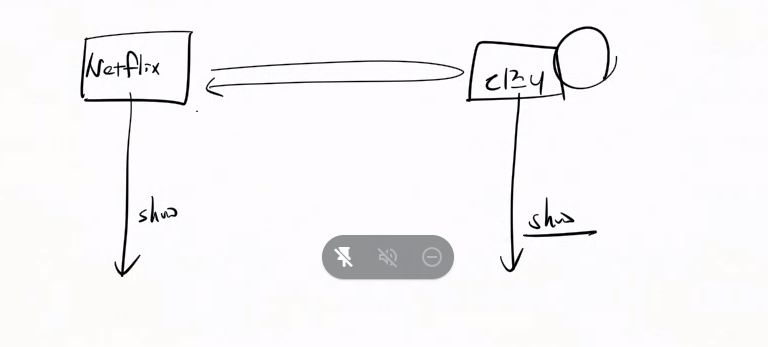 Netflix
디즈니
show
show